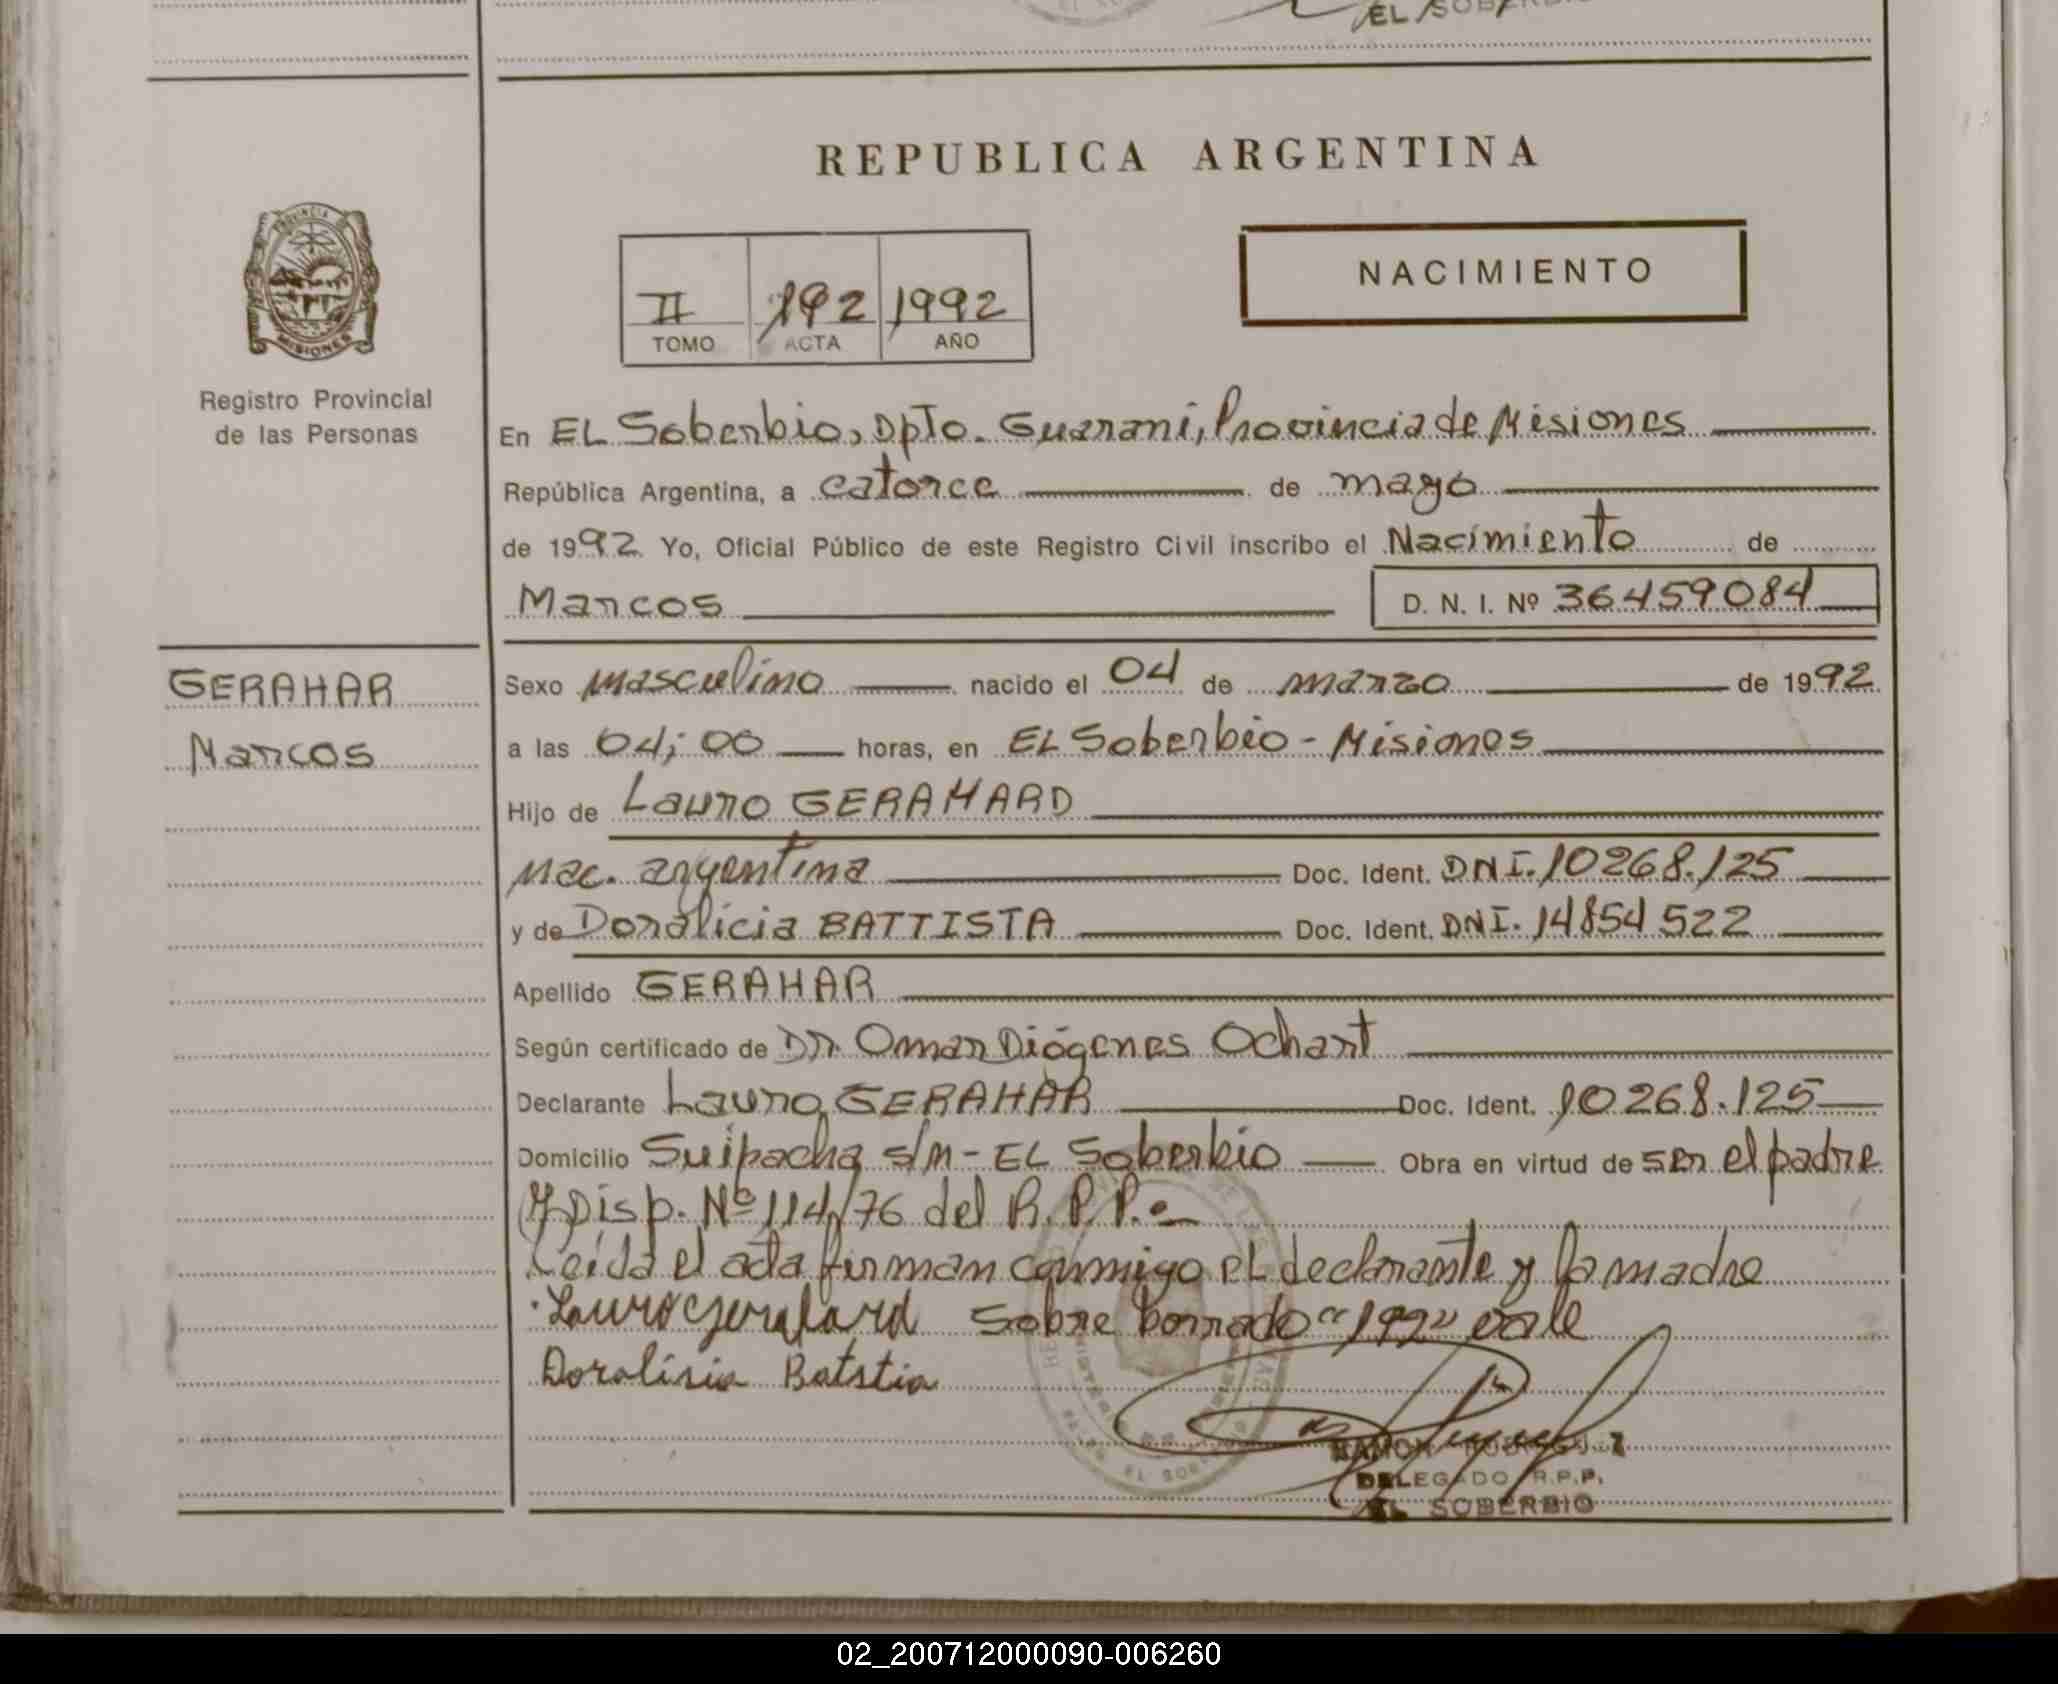 EL SOBERBIO
REPUBLICA ARGENTINA
PROVINCIA DE
MISIONES
II 192 1992
TOMO ACTA AÑO
NACIMIENTO
Registro Provincial
de las Personas
En EL Soberbio, Dpto. Guarani, Provincia de Misiones
República Argentina, a catorce de mayo
de 1992 Yo, Oficial Público de este Registro Civil inscribo el Nacimiento de
Marcos D. N. I. Nº 36459084
GERAHAR
Marcos
Sexo masculino nacido el 04 de marzo de 1992
a las 04; 00 horas, en EL Soberbio - Misiones
Hijo de Lauro GERAHARD
Nac. argentina Doc. Ident. DNI. 10268.125
y de Doralicia BATTISTA Doc. Ident. DNI. 14854522
Apellido GERAHAR
Según certificado de Dr. Omar Diógenes Ochart
Declarante Lauro GERAHAR Doc. Ident. 10268.125
Domicilio Suipacha s/n - EL Soberbio Obra en virtud de ser el padre
y Disp. Nº 114/76 del R. P. P.
Leída el acta firman conmigo el declarante y la madre
Lauro Gerahard Sobre borrado "192" vale
Doralisia Batstia
RAMON
DELEGADO R.P.P.
EL SOBERBIO
02_200712000090-006260